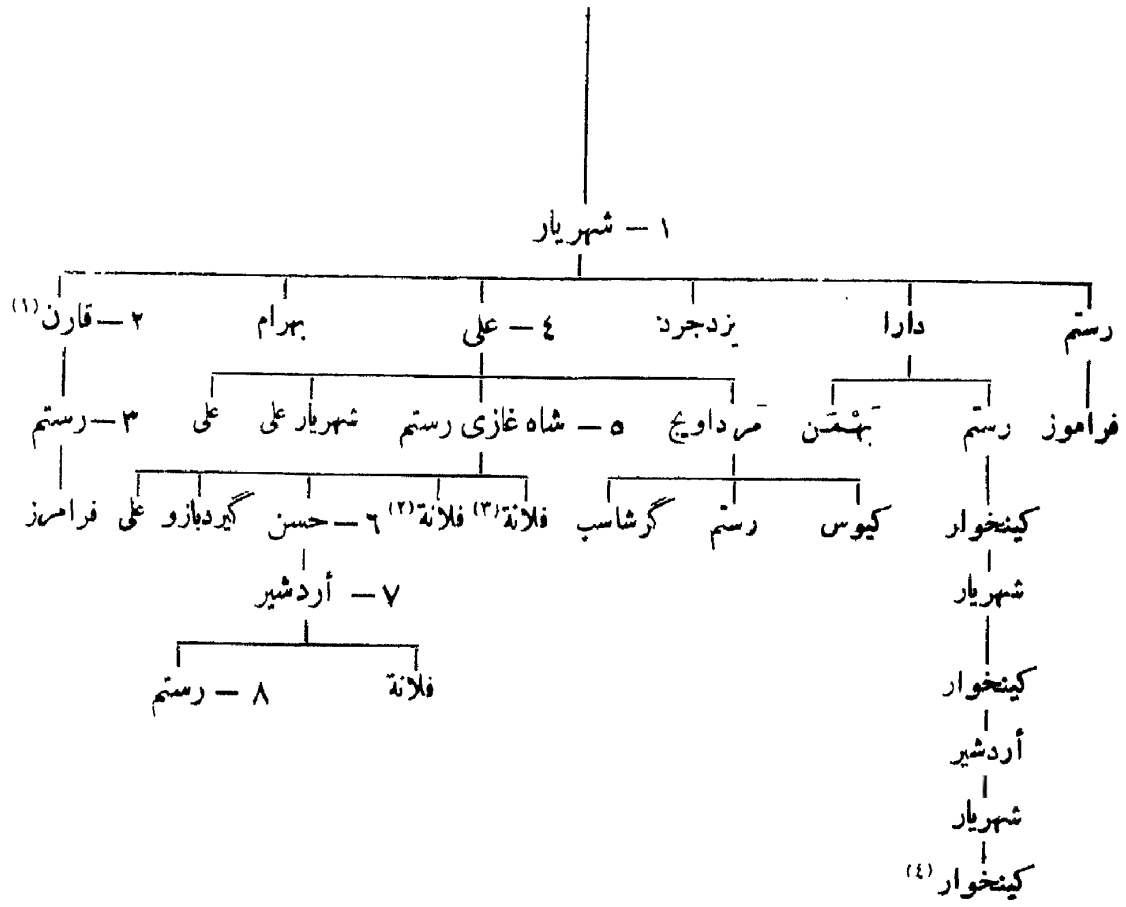 ١ – شهريار
رستم دارا يزدجرد ٤ – على بهرام ٢ – قارن (١)
فراموز رستم بَهْمَن مَرداويج ٥ – شاه غازى رستم شهريار على على ٣ – رستم
كينخوار كيوس رستم گرشاسب فلانة (٣) فلانة (٢) ٦ – حسن گيردبازو على فرامرز
شهريار ٧ – أردشير
كينخوار فلانة ٨ – رستم
أردشير
شهريار
كينخوار (٤)